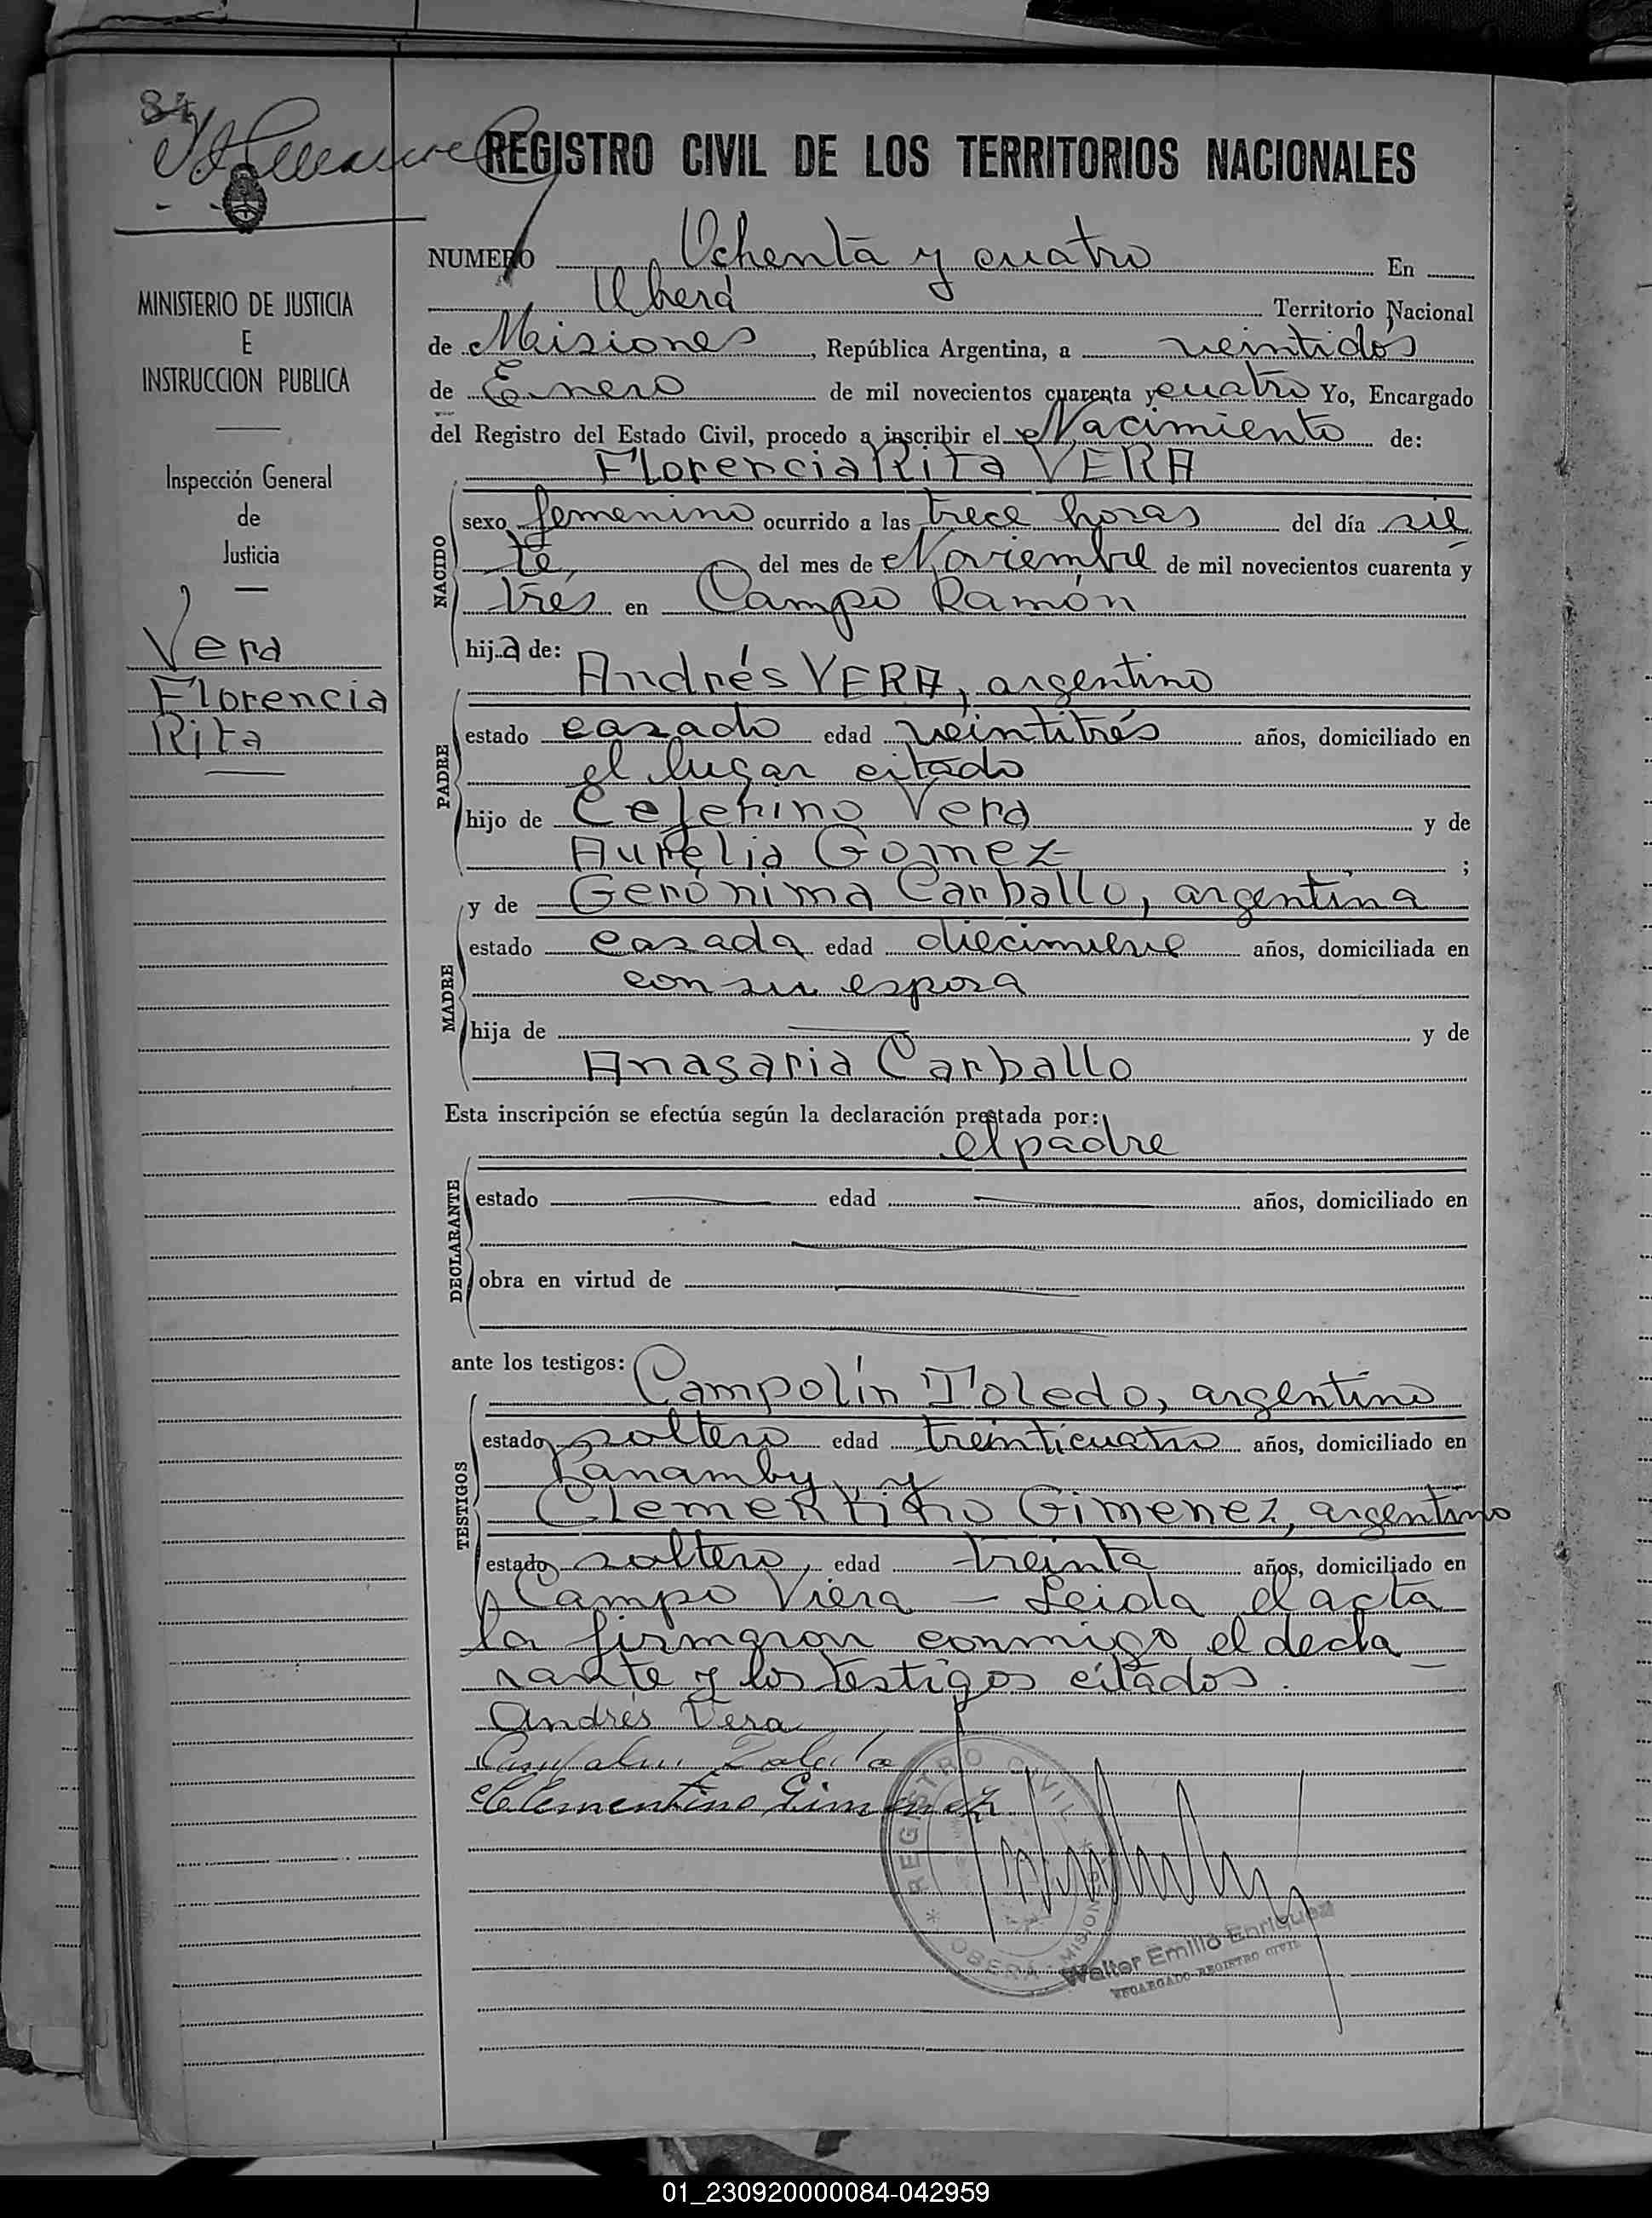 84
REGISTRO CIVIL DE LOS TERRITORIOS NACIONALES
NUMERO Ochenta y cuatro En
Oberá Territorio Nacional
de Misiones, República Argentina, a veintidos
de Enero de mil novecientos cuarenta y cuatro Yo, Encargado
del Registro del Estado Civil, procedo a inscribir el Nacimiento de:
Florencia Rita VERA
NACIDO
sexo femenino ocurrido a las trece horas del día sie
te, del mes de Noviembre de mil novecientos cuarenta y
tres en Campo Ramón
hija de:
Andrés VERA, argentino
PADRE
estado casado edad veintitrés años, domiciliado en
el lugar citado
hijo de Ceferino Vera y de
Aurelia Gomez ;
y de Gerónima Carballo, argentina
MADRE
estado casada edad diecinueve años, domiciliada en
con su esposo
hija de y de
Anasaria Carballo
Esta inscripción se efectúa según la declaración prestada por:
el padre
DECLARANTE
estado edad años, domiciliado en
obra en virtud de
ante los testigos:
Campolín Toledo, argentino
TESTIGOS
estado soltero edad treinticuatro años, domiciliado en
Panamby, y
Clementino Gimenez, argentino
estado soltero, edad treinta años, domiciliado en
Campo Viera – Leida el acta
la firmaron conmigo el decla
rante y los testigos citados.
Andrés Vera
Campolin Toledo
Clementino Gimenez
REGISTRO CIVIL
OBERÁ MISIONES
Walter Emilio Enriquez
ENCARGADO REGISTRO CIVIL
MINISTERIO DE JUSTICIA
E
INSTRUCCION PUBLICA
Inspección General
de
Justicia
Vera
Florencia
Rita
01_230920000084-042959